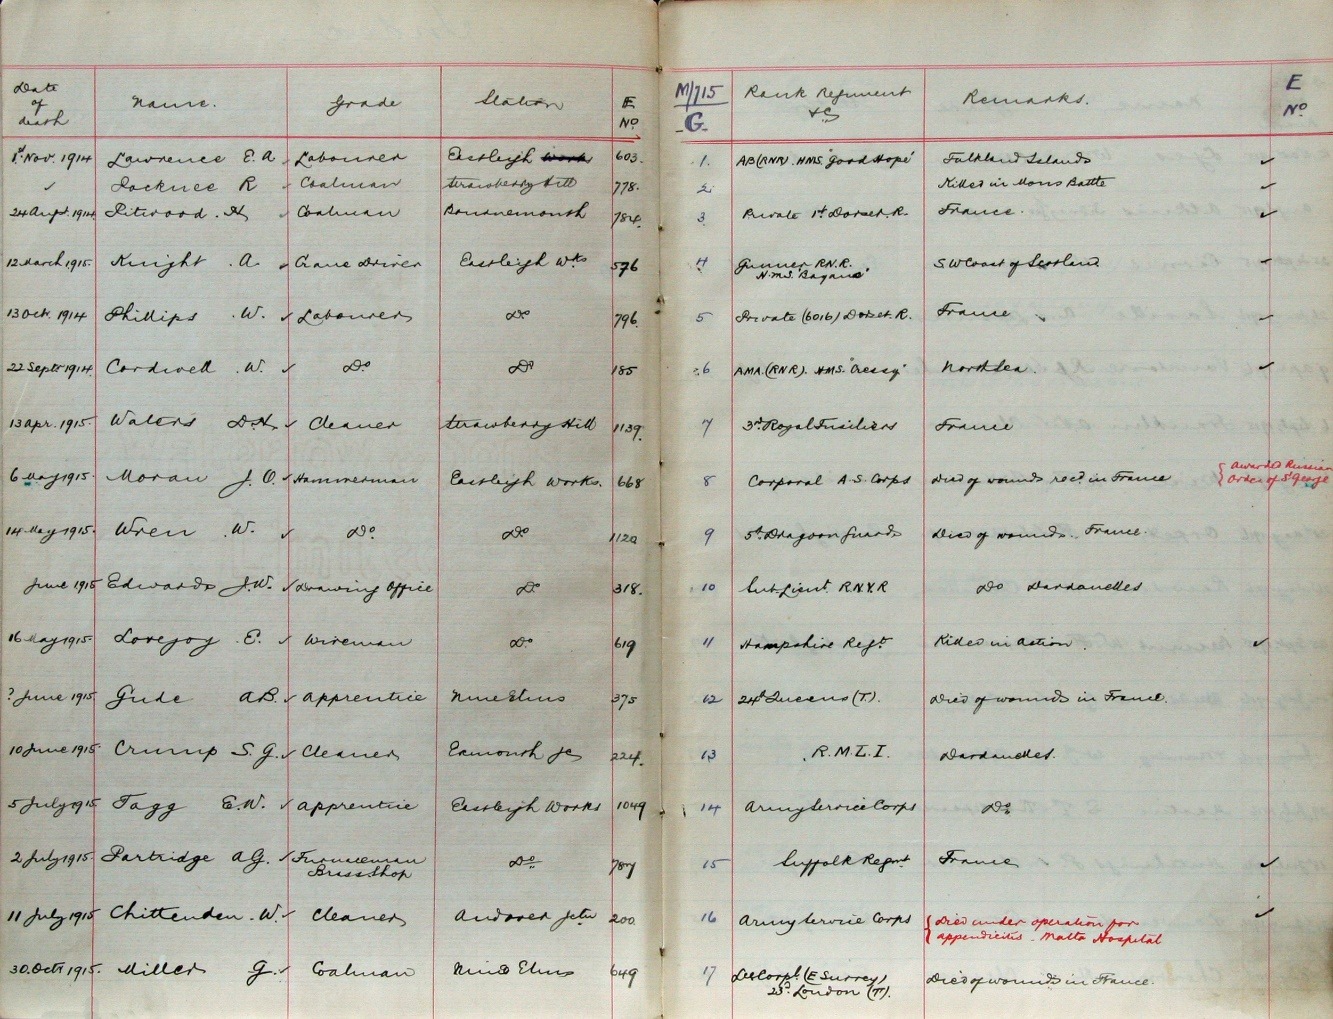 Date of death Name. Grade Station E No M/715 G. Rank Regiment &c Remarks. E No
1st Nov. 1914 Lawrence E. A Labourer Eastleigh work 603. 1. AB (RNR). HMS. "Good Hope" Falkland Islands ✓
✓ R ✓ Coalman Strawberry Hill 778. 2. Killed in Mons Battle ✓
24 Augt. 1914 Pitwood. H ✓ Coalman Bournemouth 784. 3. Private 1st Dorset. R. France. ✓
12 March 1915. Knight .A. ✓ Crane Driver Eastleigh Wks 576 4 Gunner R.N.R. S.W Coast of Scotland. ✓
H.M.S. "Bayano"
13 Oct. 1914 Phillips .W. ✓ Labourer Do 796. 5 Private (6016) Dorset. R. France ✓
22 Septr 1914. Cordwell .W. ✓ Do Do 185 6 AMA. (RNR). HMS. "Cressy" North Sea. ✓
13 Apr. 1915. Waters D.H. ✓ Cleaner Strawberry Hill 1139. 7 3rd Royal Fusiliers France
6 May 1915. Moran J. O. ✓ Hammerman Eastleigh Works. 668 8 Corporal A. S. Corps Died of wounds recd. in France { Awarded Russian
Order of St George
14 May 1915. Wren .W. ✓ Do. Do. 9 5th. Dragoon Guards Died of wounds. France.
June 1915 Edwards J.W. ✓ Drawing Office Do 318. 10 Sub Lieut. R.N.V.R Do Dardanelles
16 May 1915. Lovejoy E. ✓ Wireman Do 619 11 Hampshire Regt. Killed in action. ✓
? June 1915. Gude A.B. ✓ Apprentice Nine Elms 375 12 24th Queens (T). Died of wounds in France.
10 June 1915. Crump S. G. ✓ Cleaner Exmouth Jc 224. 13 R. M. L. I. Dardanelles.
5 July 1915 Tagg E.W. ✓ Apprentice Eastleigh Works 1049 14 Army Service Corps Do
2 July 1915. Partridge A G. ✓ Furnaceman Do 15 Suffolk Regmt France ✓
Brass Shop
11 July 1915 Chittenden .W. ✓ Cleaner Andover Jctn 200. 16 Army Service Corps { Died under operation for ✓
appendicitis - Malta Hospital
30. Octr 1915. Miller G. ✓ Coalman Nine Elms 649 17 Lce Corpl. (E Surrey) Died of wounds in France.
23rd. London (T).